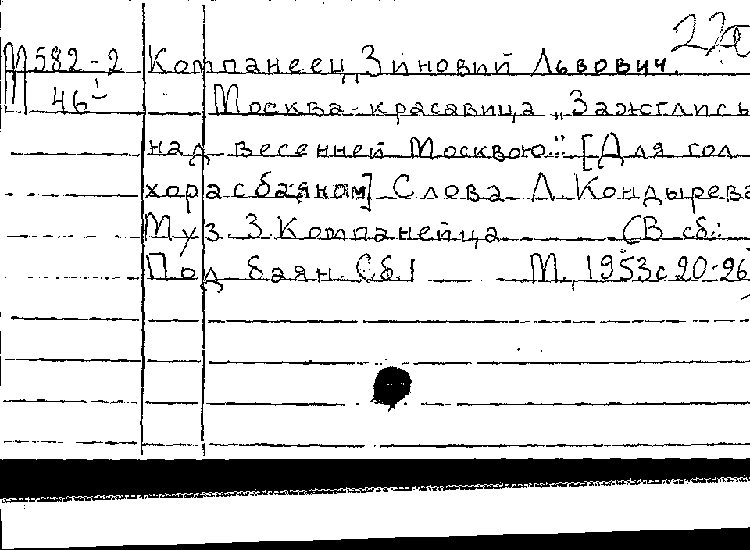 М582-2 Компанеец, Зиновий Львович.
46 Москва-красавица „Зажглись
над весенней Москвою..." [Для гол.
хора с баяном] Слова Л. Кондырева
Муз. З. Компанейца (В сб.:
Под баян. Сб. 1 М., 1953 с 20-26